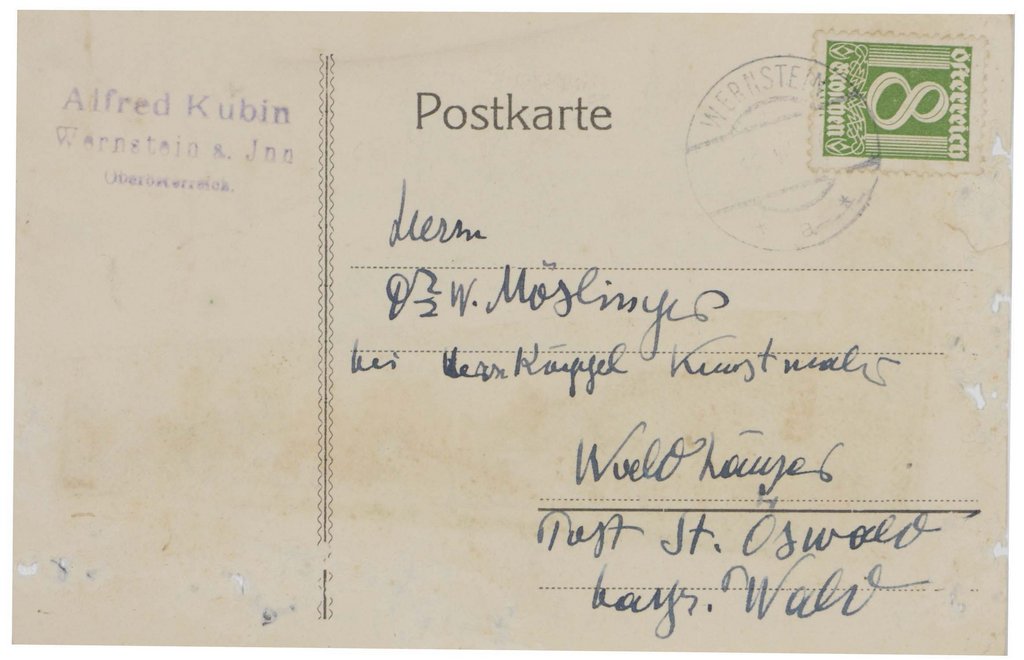 Alfred Kubin
Wernstein a. Inn
Oberösterreich.
Postkarte
WERNSTEIN
Österreich
8
Kronen
Herrn
Dr W. Möslinger
bei Herrn Käppel Kunstmaler
Waldhäuser
Post St. Oswald
bayr. Wald